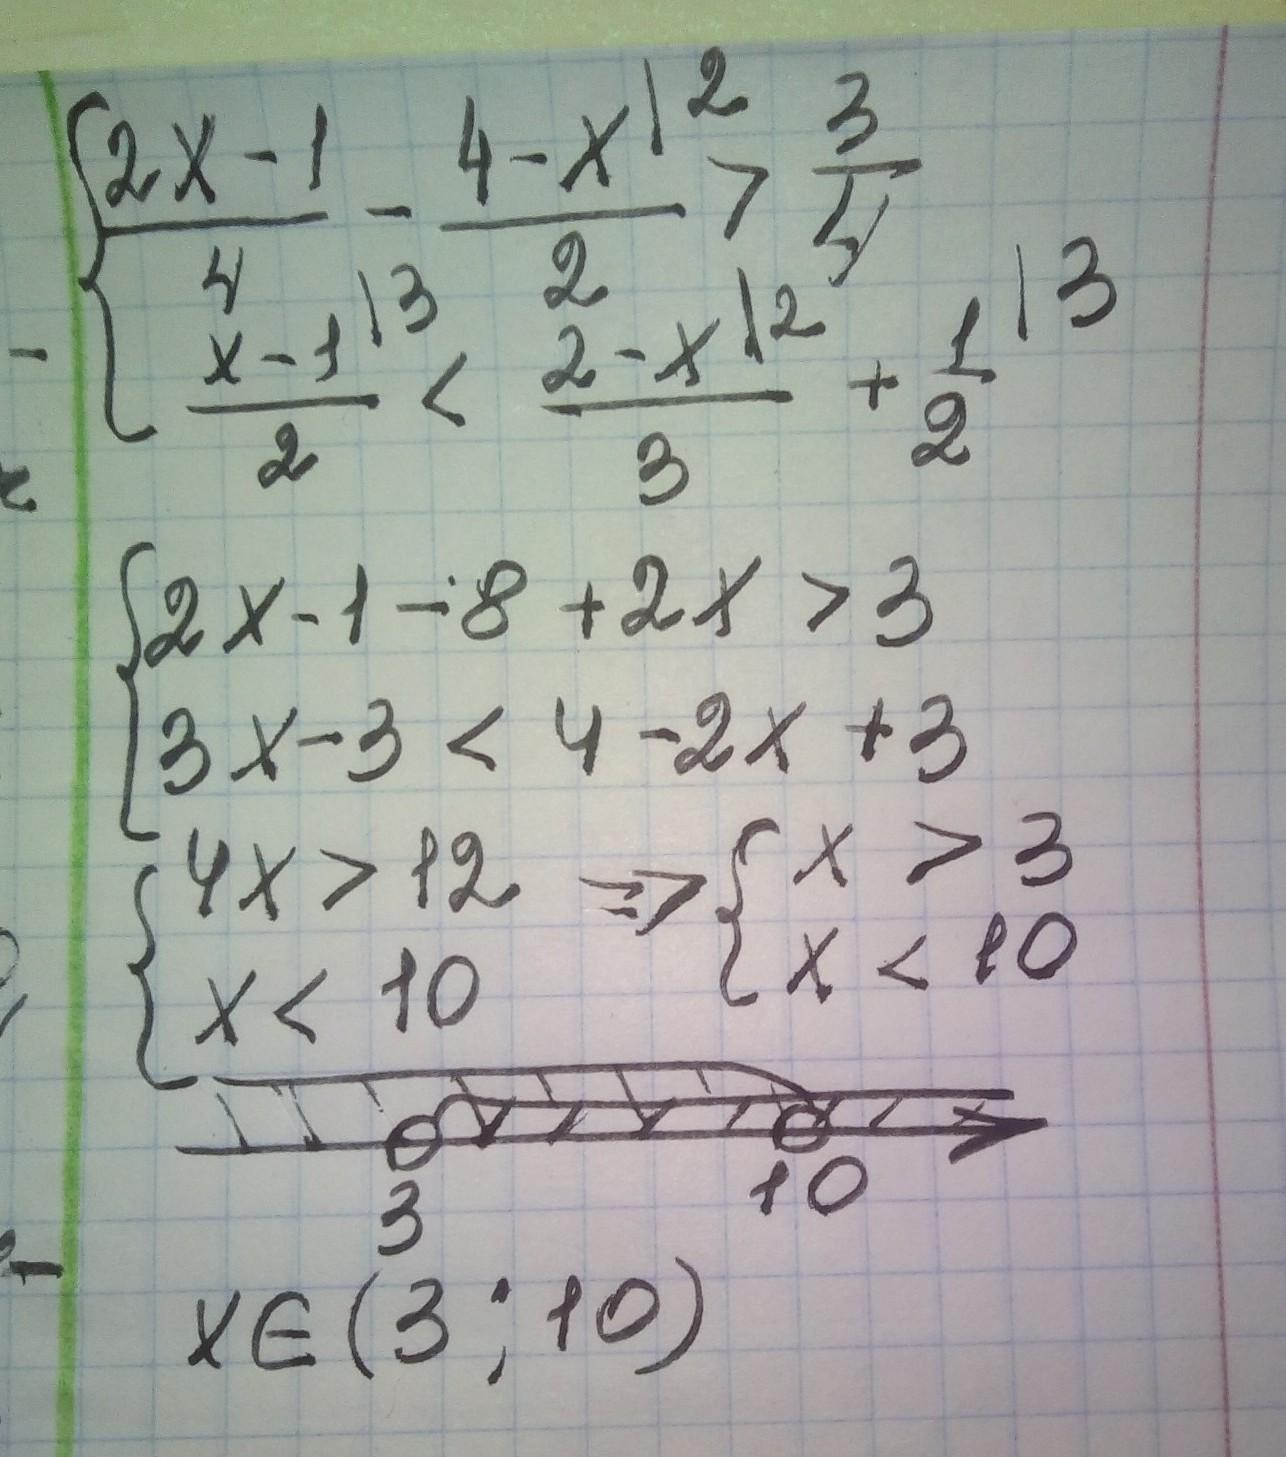 { (2x-1)/4 - (4-x|²)/2 > 3/4
(x-1|³)/2 < (2-x|²)/3 + 1/2 |3
{ 2x-1-8+2x>3
3x-3<4-2x+3
{ 4x>12 => { x>3
x<10 x<10
3 10
x∈(3;10)